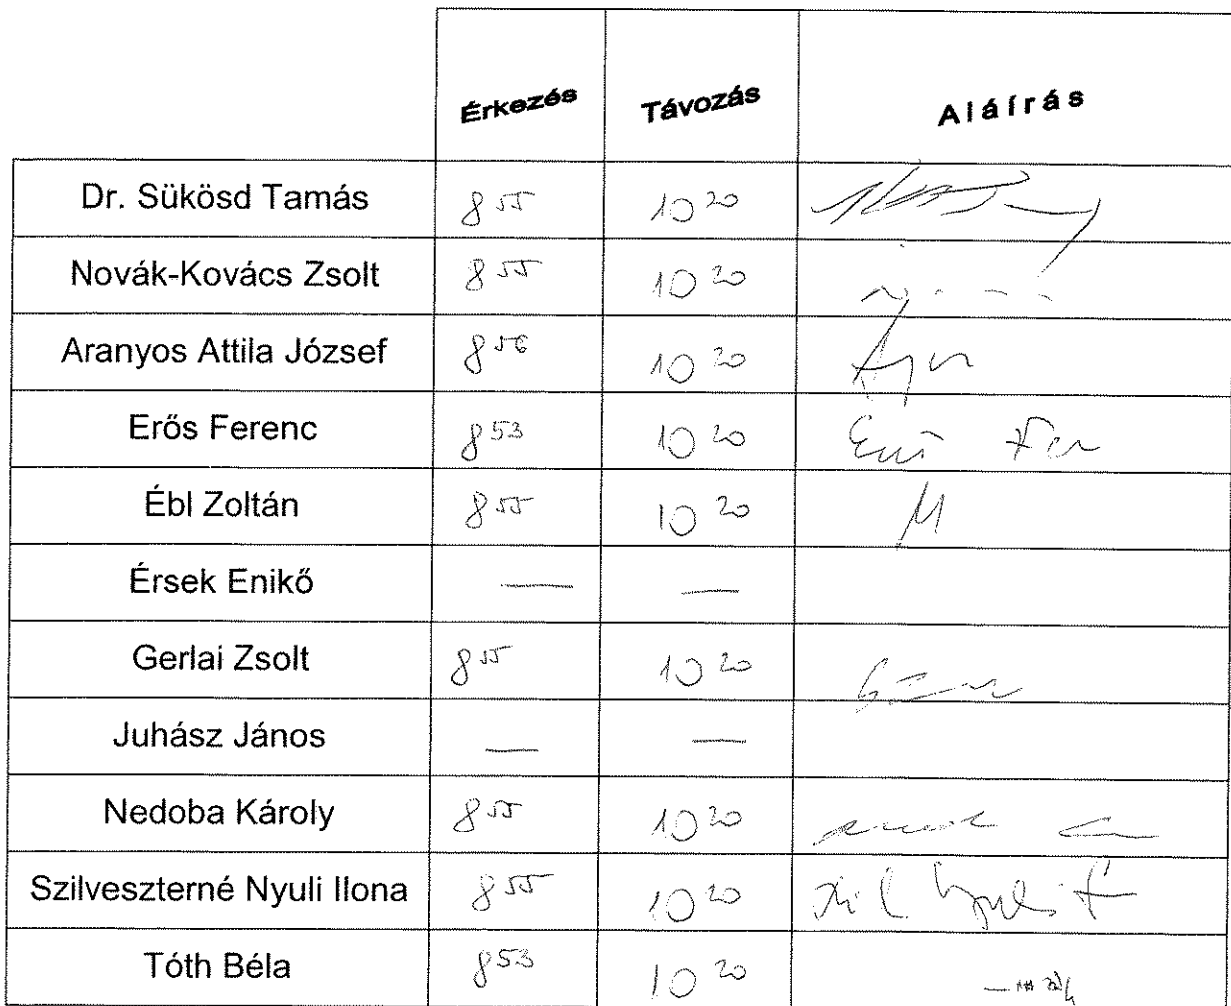 Érkezés Távozás Aláírás
Dr. Sükösd Tamás 8 55 10 20
Novák-Kovács Zsolt 8 55 10 20
Aranyos Attila József 8 56 10 20
Erős Ferenc 8 53 10 20
Ébl Zoltán 8 55 10 20
Érsek Enikő — —
Gerlai Zsolt 8 55 10 20
Juhász János — —
Nedoba Károly 8 55 10 20
Szilveszterné Nyuli Ilona 8 55 10 20
Tóth Béla 8 53 10 20